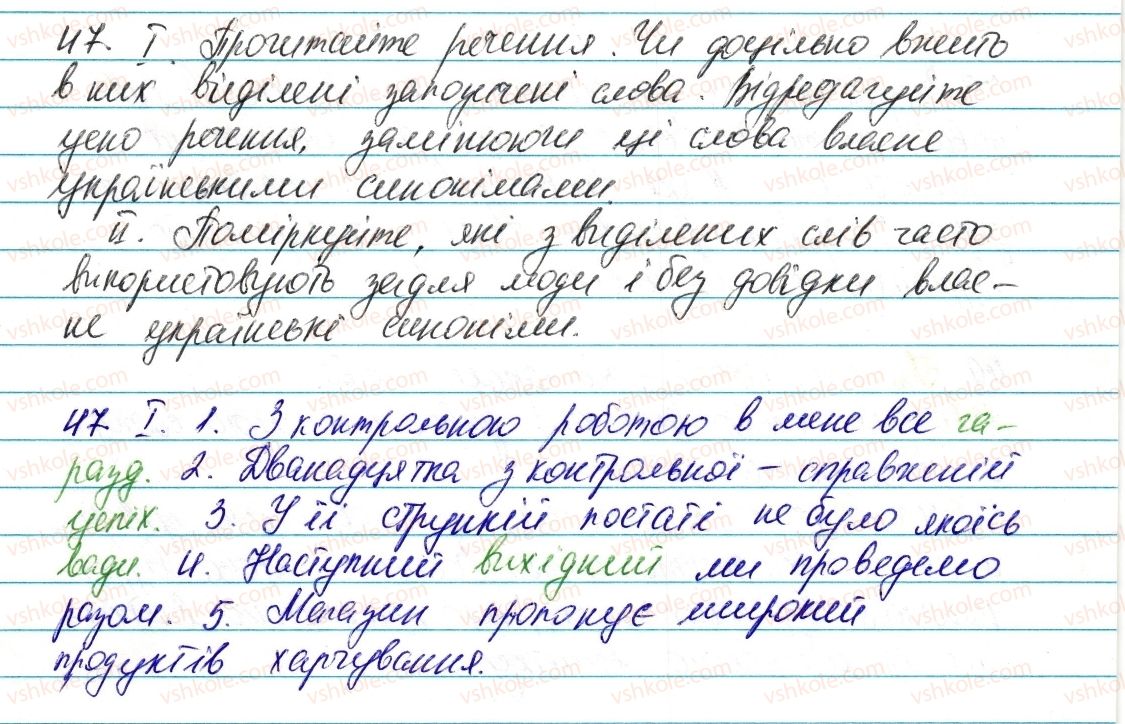 47. I. Прочитайте речення. Чи доцільно вжить
в них виділені запозичені слова. Відредагуйте
усно речення, замінюючи ці слова власне
українськими синонімами.
II. Поміркуйте, які з виділених слів часто
використовують задля моди і без довідки влас-
не українські синоніми.
47 I. 1. З контрольною роботою в мене все га-
разд. 2. Дванадцятка з контрольної – справжній
успіх. 3. У її стрункій постаті не було якоїсь
вади. 4. Наступний вихідний ми проведемо
разом. 5. Магазин пропонує широкий
продуктів харчування.